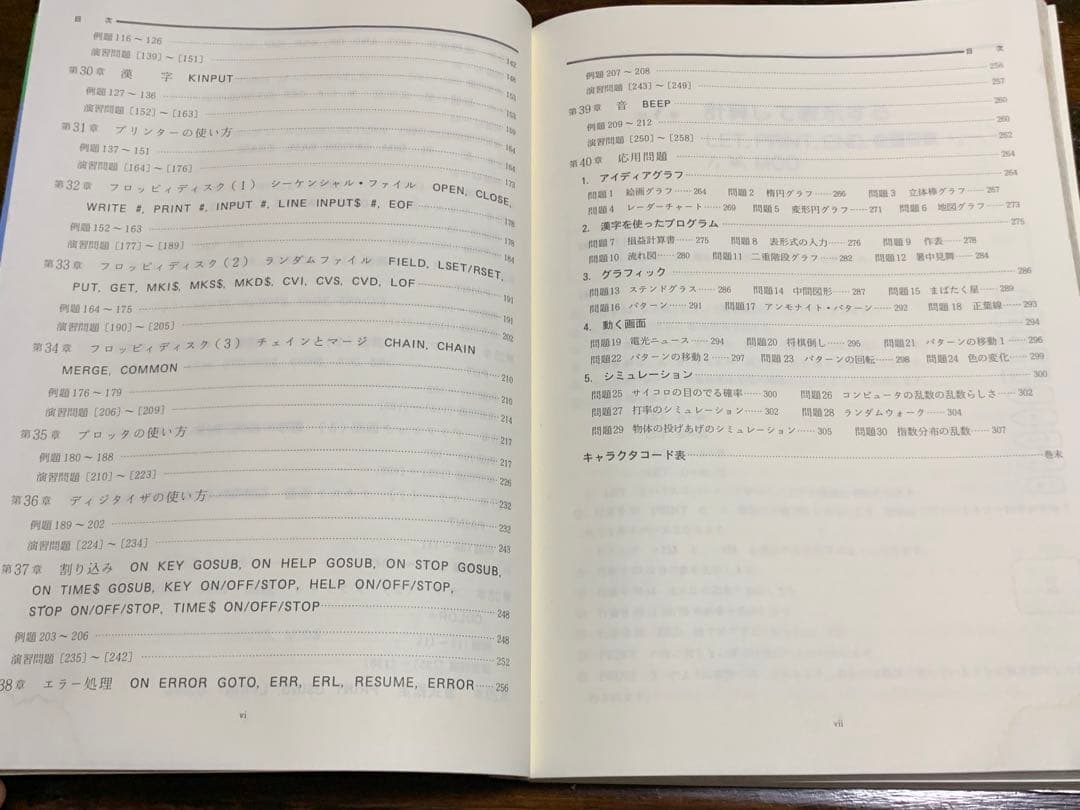 目　次
例題 116～126
142
演習問題［139］～［151］
148
第30章　漢　字　KINPUT
153
例題 127～136
153
演習問題［152］～［163］
159
第31章　プリンターの使い方
164
例題 137～151
164
演習問題［164］～［176］
173
第32章　フロッピィディスク(1)　シーケンシャル・ファイル　OPEN, CLOSE,
WRITE #, PRINT #, INPUT #, LINE INPUT$ #, EOF
178
例題 152～163
178
演習問題［177］～［189］
184
第33章　フロッピィディスク(2)　ランダムファイル　FIELD, LSET/RSET,
PUT, GET, MKI$, MKS$, MKD$, CVI, CVS, CVD, LOF
191
例題 164～175
191
演習問題［190］～［205］
202
第34章　フロッピィディスク(3)　チェインとマージ　CHAIN, CHAIN
MERGE, COMMON
210
例題 176～179
210
演習問題［206］～［209］
214
第35章　プロッタの使い方
217
例題 180～188
217
演習問題［210］～［223］
226
第36章　ディジタイザの使い方
232
例題 189～202
232
演習問題［224］～［234］
243
第37章　割り込み　ON KEY GOSUB, ON HELP GOSUB, ON STOP GOSUB,
ON TIME$ GOSUB, KEY ON/OFF/STOP, HELP ON/OFF/STOP,
STOP ON/OFF/STOP, TIME$ ON/OFF/STOP……248
例題 203～206……248
演習問題［235］～［242］……252
38章　エラー処理　ON ERROR GOTO, ERR, ERL, RESUME, ERROR……256
vi
目　次
例題 207～208……256
演習問題［243］～［249］……257
第39章　音　BEEP……260
例題 209～212……260
演習問題［250］～［258］……262
第40章　応用問題……264
1.　アイディアグラフ……264
問題1　絵画グラフ……264　問題2　楕円グラフ……266　問題3　立体棒グラフ……267
問題4　レーダーチャート……269　問題5　変形円グラフ……271　問題6　地図グラフ……273
2.　漢字を使ったプログラム……275
問題7　損益計算書……275　問題8　表形式の入力……276　問題9　作表……278
問題10　流れ図……280　問題11　二重階段グラフ……282　問題12　暑中見舞……284
3.　グラフィック……286
問題13　ステンドグラス……286　問題14　中間図形……287　問題15　まばたく星……289
問題16　パターン……291　問題17　アンモナイト・パターン……292　問題18　正葉線……293
4.　動く画面……294
問題19　電光ニュース……294　問題20　将棋倒し……295　問題21　パターンの移動1……296
問題22　パターンの移動2……297　問題23　パターンの回転……298　問題24　色の変化……299
5.　シミュレーション……300
問題25　サイコロの目のでる確率……300　問題26　コンピュータの乱数の乱数らしさ……302
問題27　打率のシミュレーション……302　問題28　ランダムウォーク……304
問題29　物体の投げあげのシミュレーション……305　問題30　指数分布の乱数……307
キャラクタコード表……巻末
vii